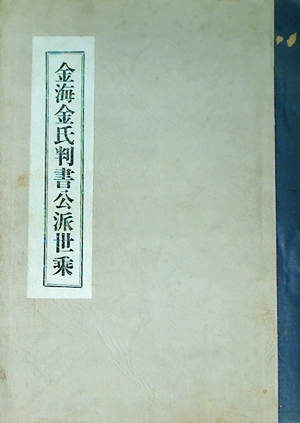 金海金氏判書公派世乘